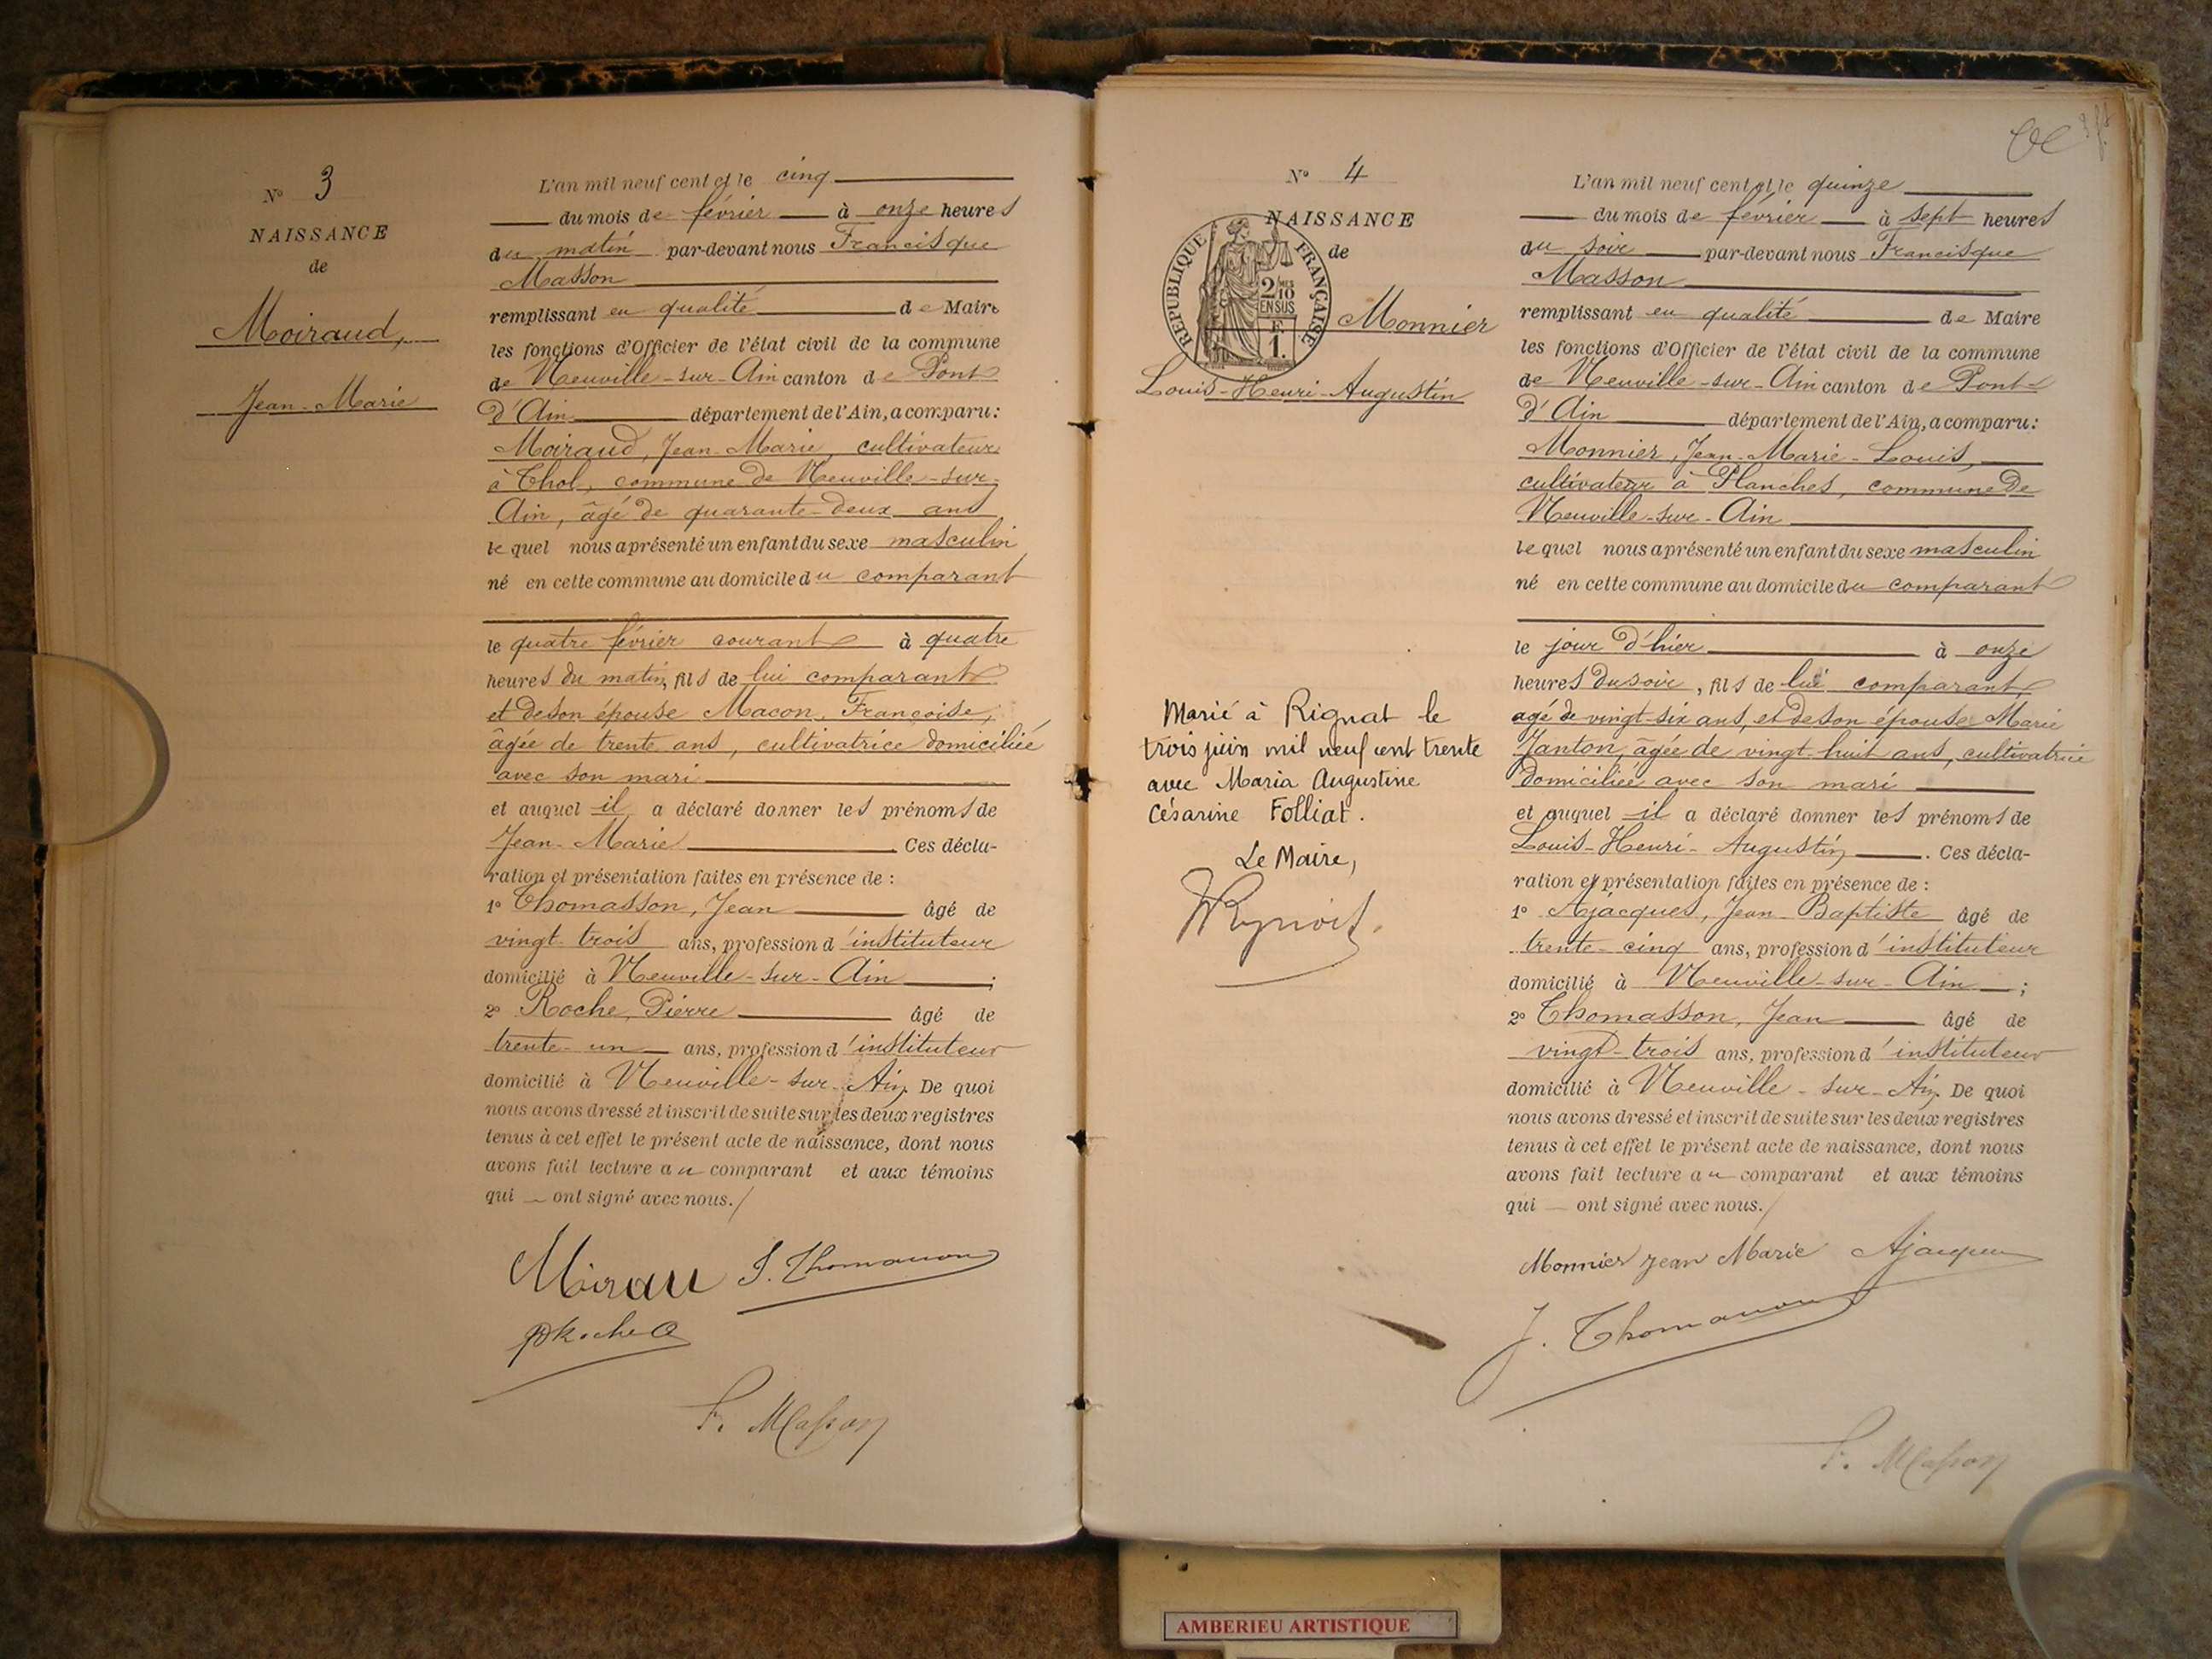 N° 3
NAISSANCE
de
Moiraud,
Jean-Marie
L'an mil neuf cent et le cinq
du mois de février à onze heures
du matin par-devant nous Francisque
Masson
remplissant en qualité de Maire
les fonctions d'Officier de l'état civil de la commune
de Neuville-sur-Ain canton de Pont
d'Ain département de l'Ain, a comparu:
Moiraud, Jean-Marie, cultivateur
à Thol, commune de Neuville-sur-
Ain, âgé de quarante-deux ans
lequel nous a présenté un enfant du sexe masculin
né en cette commune au domicile du comparant
le quatre février courant à quatre
heures du matin, fils de lui comparant
et de son épouse Macon, Françoise,
âgée de trente ans, cultivatrice domiciliée
avec son mari
et auquel il a déclaré donner les prénoms de
Jean-Marie Ces décla-
ration et présentation faites en présence de :
1° Thomasson, Jean âgé de
vingt-trois ans, profession d'instituteur
domicilié à Neuville-sur-Ain ;
2° Roche, Pierre âgé de
trente-un ans, profession d'instituteur
domicilié à Neuville-sur-Ain. De quoi
nous avons dressé et inscrit de suite sur les deux registres
tenus à cet effet le présent acte de naissance, dont nous
avons fait lecture au comparant et aux témoins
qui ont signé avec nous./
Mirau J. Thomasson
P Roche
F. Masson
N° 4
NAISSANCE
de
REPUBLIQUE FRANÇAISE
2/10 MES
EN SUS
F.
1.
Monnier
Louis-Henri-Augustin
Marié à Rignat le
trois juin mil neuf cent trente
avec Maria Augustine
Césarine Folliat.
Le Maire,
L'an mil neuf cent et le quinze
du mois de février à sept heures
du soir par-devant nous Francisque
Masson
remplissant en qualité de Maire
les fonctions d'Officier de l'état civil de la commune
de Neuville-sur-Ain canton de Pont
d'Ain département de l'Ain, a comparu:
Monnier, Jean-Marie-Louis,
cultivateur à Planches, commune de
Neuville-sur-Ain
lequel nous a présenté un enfant du sexe masculin
né en cette commune au domicile du comparant
le jour d'hier à onze
heures du soir, fils de lui comparant,
agé de vingt-six ans, et de son épouse Marie
Janton, âgée de vingt-huit ans, cultivatrice
domiciliée avec son mari
et auquel il a déclaré donner les prénoms de
Louis-Henri-Augustin . Ces décla-
ration et présentation faites en présence de :
1° Ajacques, Jean-Baptiste âgé de
trente-cinq ans, profession d'instituteur
domicilié à Neuville-sur-Ain ;
2° Thomasson, Jean âgé de
vingt-trois ans, profession d'instituteur
domicilié à Neuville-sur-Ain. De quoi
nous avons dressé et inscrit de suite sur les deux registres
tenus à cet effet le présent acte de naissance, dont nous
avons fait lecture au comparant et aux témoins
qui ont signé avec nous./
Monnier Jean Marie Ajacques
J. Thomasson
F. Masson
AMBERIEU ARTISTIQUE